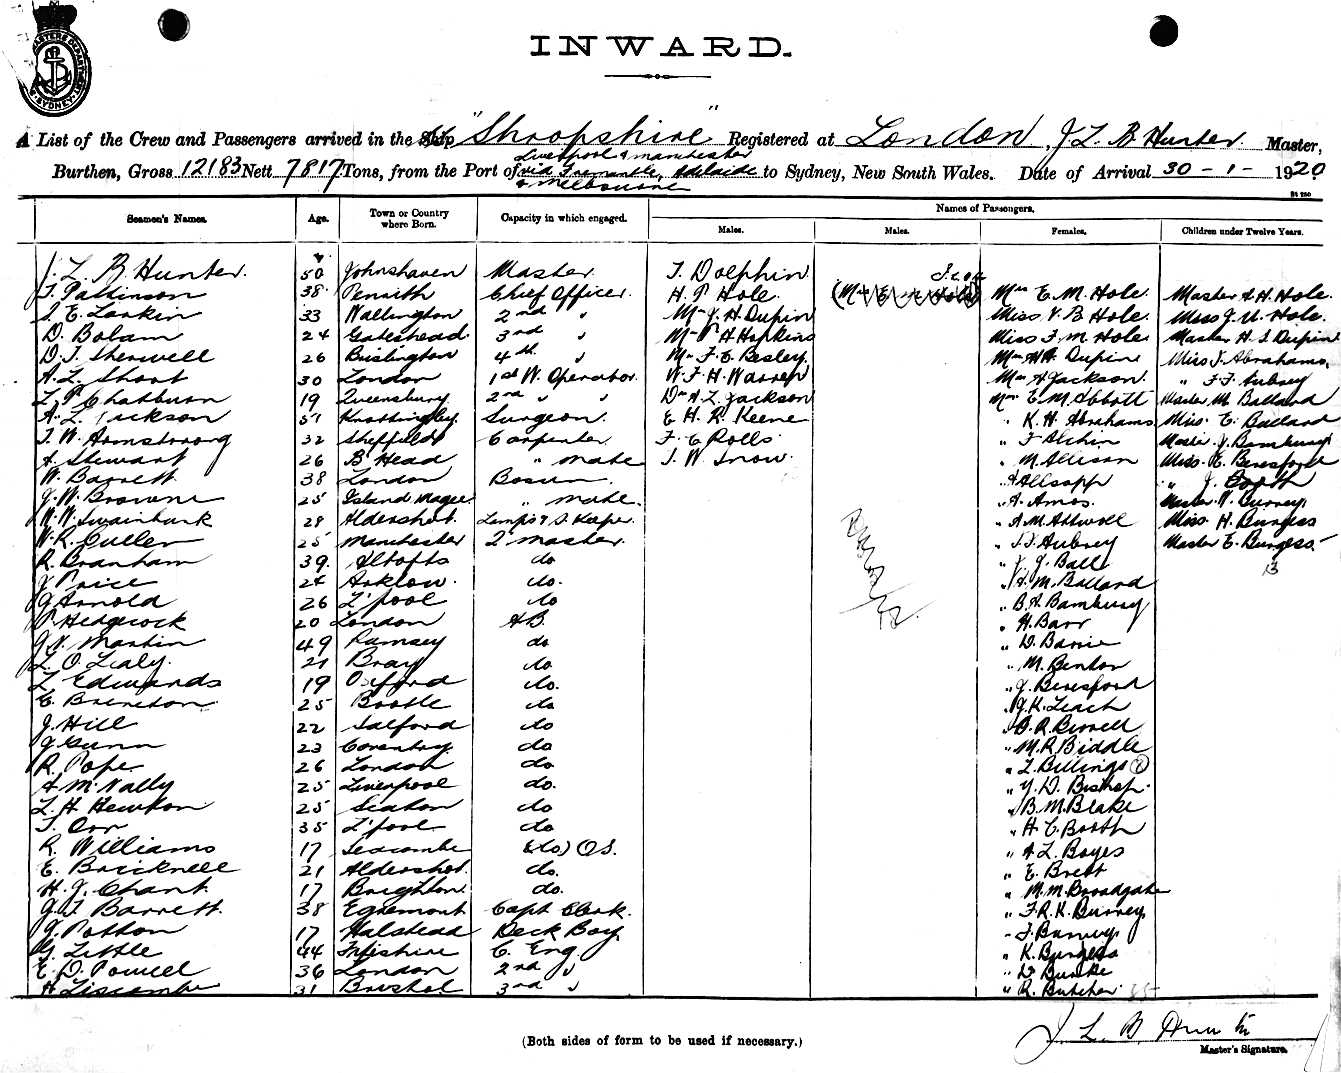 INWARD.
A List of the Crew and Passengers arrived in the Ship "Shropshire" Registered at London, J L B Hunter Master,
Liverpool & Manchester
Burthen, Gross 12183 Nett 7817 Tons, from the Port of via Fremantle, Adelaide to Sydney, New South Wales. Date of Arrival 30 - 1 - 1920.
& Melbourne
Names of Passengers.
Seamen's Names. Age. Town or Country where Born. Capacity in which engaged. Males. Males. Females. Children under Twelve Years.
J. L. B. Hunter. 50 Johnshaven Master. T. Dolphin
T. Pattinson 38 Penrith Chief Officer. H. P Hole. Mrs E. M. Hole. Master A. H. Hole.
S. E. Larkin 33 Wallington 2nd " Mr J. H. Dupin Miss V. B Hole. Miss J. U. Hole.
D. Bolam 24 Gateshead 3rd " Mr P H Hopkins Miss F. M. Hole Master H. S Dupin
D. T. Sherwell 26 Brislington 4th " Mr F. E. Besley Mrs A. Dupin Miss J. Abrahams.
A. L. Short 30 London 1st W. Operator. W. F. H. Warren Mrs A Jackson. " F. F. Aubrey
L. P Chatburn 19 Queensbury 2nd " " Dr A. L. Jackson Mrs E. M. Abbott Master M. Ballard
A. L. Jackson 57 Knottingley Surgeon. E H. R. Keene " K. H. Abrahams Miss E. Ballard
T. W. Armstrong 32 Sheffield Carpenter. F. C Rolls " F Alchin Master J. Bambury
A. Stewart 26 B'Head " mate T. W. Snow. " M. Allison Miss E. Beresford
W. Barrett 38 London Bosun " A Allsopp " J. Booth
J. W. Browne 25 Island Magee " mate. " A. Amos. Master W. Burney
W. W. Swainbank 28 Aldershot. Lamps & S. Keeper. " A. M. Attwell Miss H. Burgess
W. R. Cullen 25 Manchester Q' Master. " J. F. Aubrey Master E. Burgess.
R. Branham 39. Altofts do " J. Ball 13
J. Price 24 Arklow. do. " A. M. Ballard
G Arnold 26 L'pool do " B. A. Bambury
P Hedgecock 20 London AB. " H. Barr
J. V. Martin 49 Ramsey do " D. Barrie
L. O. Lealy. 21 Bray do " M. Benton
L Edwards 19 Oxford do. " J. Beresford
E. Brereton 25 Bootle do " J. K. Leach
J. Hill 22 Salford do " B. R. Birrell
J Gunn 23 Coventry. do " M. R. Biddle
R. Pope 26 London do " L. Billings
A McNally 25 Liverpool do. " Y. D. Bishop.
L. H. Hewton 25 Seaton do " B. M. Blake
T. Orr 35 L'pool do " H. C. Booth
R. Williams 17 Seacombe (do) O.S. " A. L. Boyes
E. Bricknell 21 Aldershot. do. " E. Brett
H. J. Chant. 17 Brighton do. " M. M. Broadgate
J. T Barrett. 38 Egremont Capt Clerk. " F. R. K. Burney
J. Potton 17 Halstead Deck Boy " F. Burney
G. Little 44 Fifeshire C. Eng. " K. Burgess
E. D. Powell 36 London 2nd " " D. Burke
H Liscombe 31 Bristol 3rd " " R. Butcher. 35
J. L. B. Hunter
(Both sides of form to be used if necessary.)
Master's Signature.